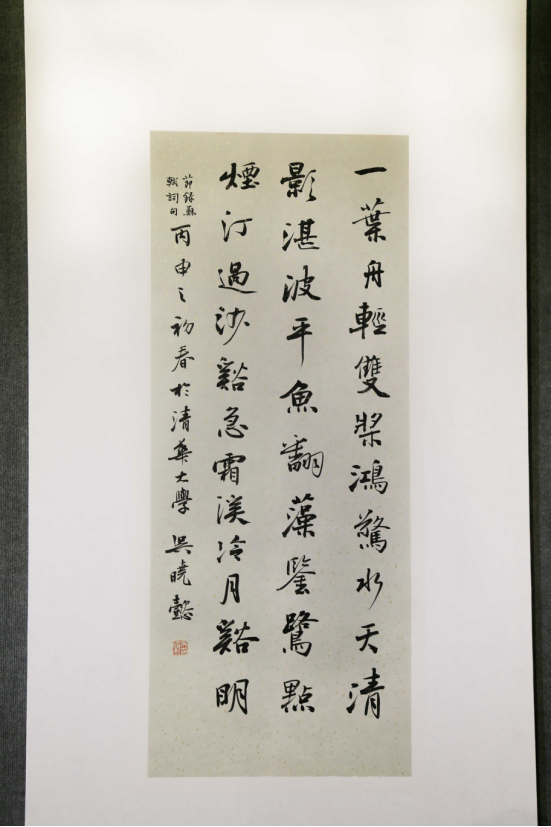 一葉舟輕雙槳鴻驚水天清
影湛波平魚翻藻鑒鷺點
煙汀過沙谿急霜溪冷月谿明
節錄蘇
軾詞句
丙申之初春於清華大學 吳曉懿